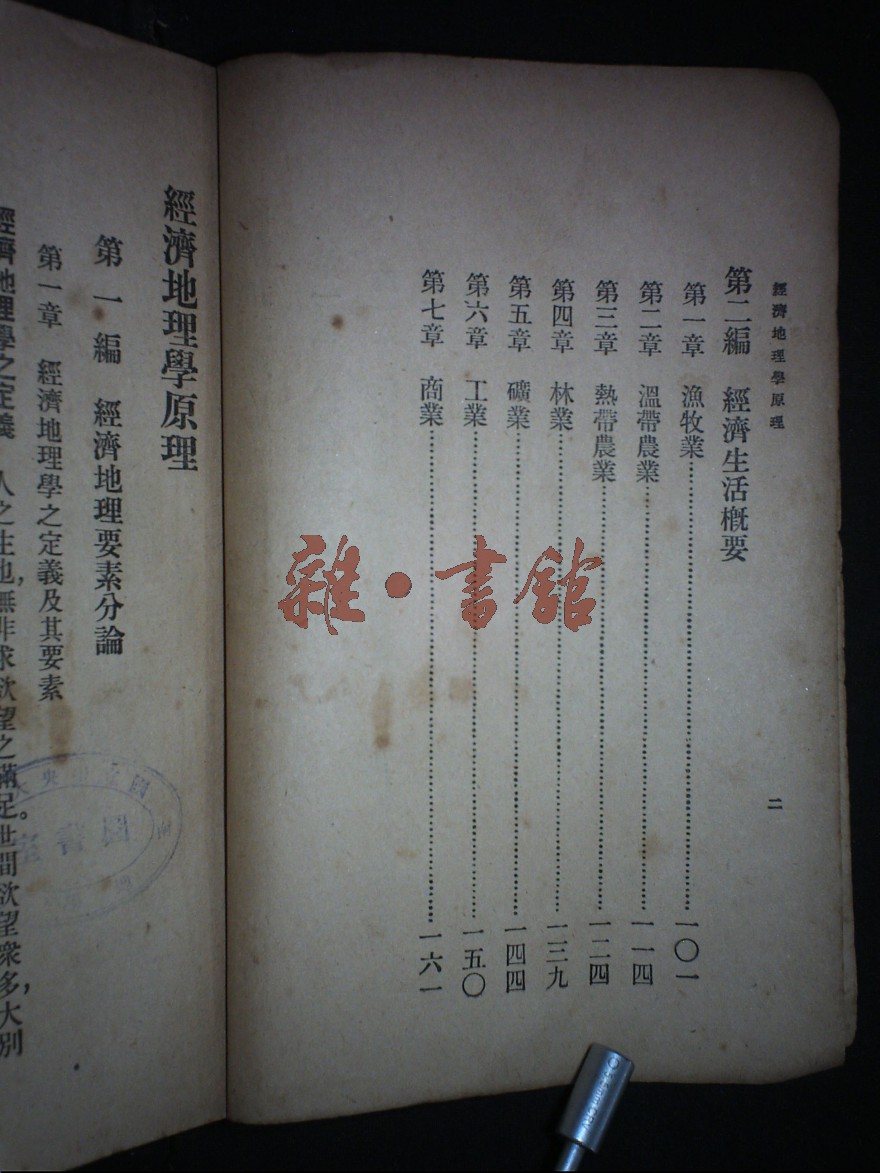 經濟地理學原理
二
第二編　經濟生活概要
第一章　漁牧業……一〇一
第二章　溫帶農業……一一四
第三章　熱帶農業……一二四
第四章　林業……一三九
第五章　礦業……一四四
第六章　工業……一五〇
第七章　商業……一六一
雜·書館
經濟地理學原理
第一編　經濟地理要素分論
第一章　經濟地理學之定義及其要素
經濟地理學之定義　人之生也，無非求欲望之滿足。世間欲望衆多，大別